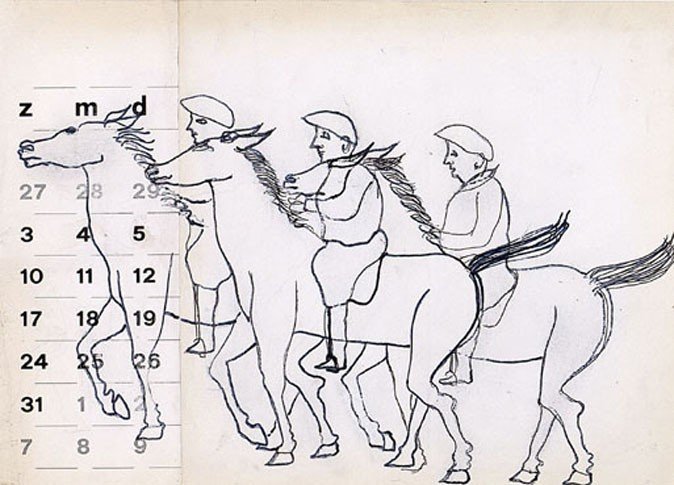 z m d
27 28 29
3 4 5
10 11 12
17 18 19
24 25 26
31 1 2
7 8 9